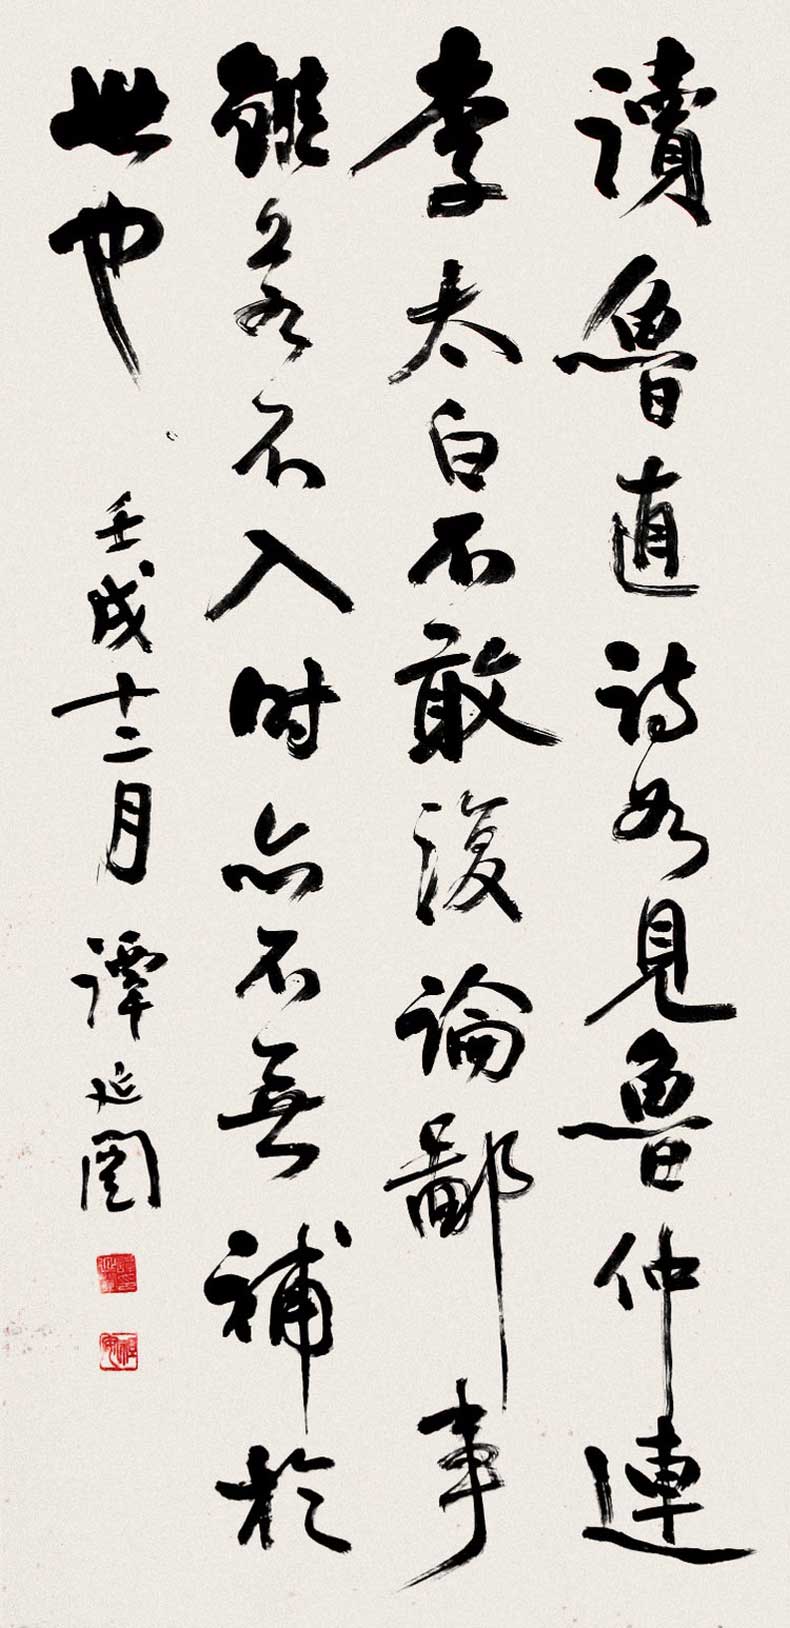 讀魯直詩如見魯仲連
李太白不敢復論鄙事
雖若不入时亦不無補於
世也
壬戌十二月 譚延闓